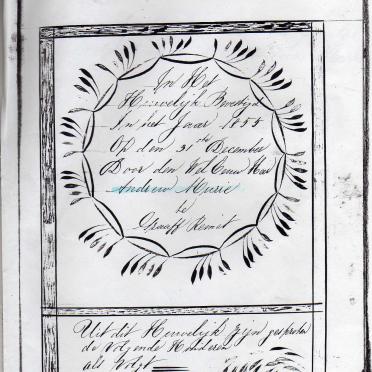 In Het
Huwelijk Bevestigd
In het Jaar 1855
Op den 31ste December
Door den Wel Eerw Heer
Andrew Murray
te
Graaff Reinet
Uit dit Huwelijk zijn gesproten
de Volgende Kinderen
als Volgt